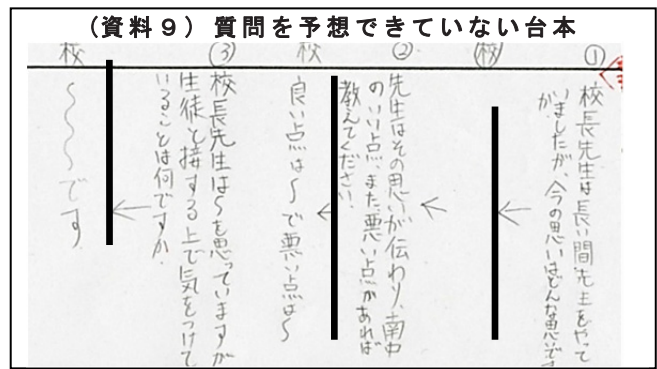 （資料９）質問を予想できていない台本
①
校長先生は長い間先生をやって
いましたが、今の思いはどんな思いです
か。
校
②
先生はその思いが伝わり、南中
のいい点、また、悪い点があれば
教えてください。
校
良い点は〜で悪い点は〜
③
校長先生は〜を思っていますが
生徒と接する上で気をつけて
いることは何ですか。
校
〜〜〜です。